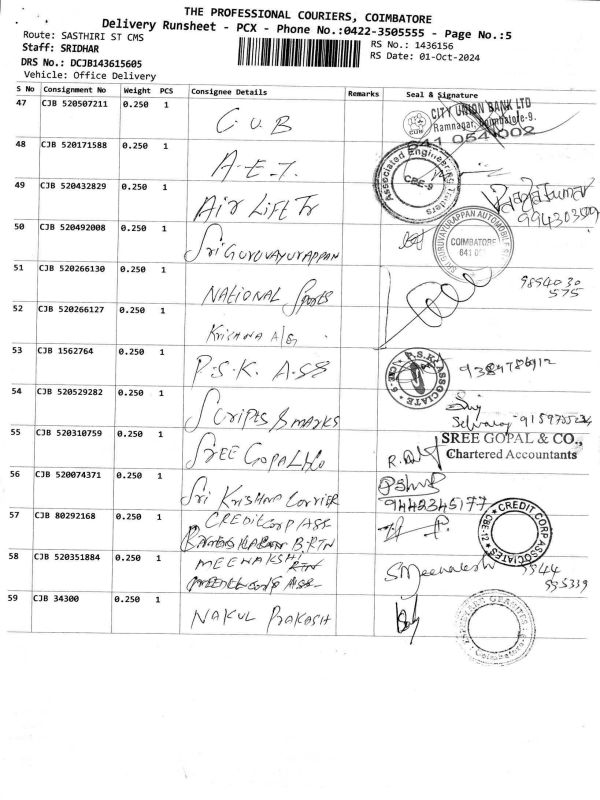 THE PROFESSIONAL COURIERS, COIMBATORE
Delivery Runsheet - PCX - Phone No.:0422-3505555 - Page No.:5
Route: SASTHIRI ST CMS
RS No.: 1436156
Staff: SRIDHAR
RS Date: 01-Oct-2024
DRS No.: DCJB143615605
Vehicle: Office Delivery
S No Consignment No Weight PCS Consignee Details Remarks Seal & Signature
47 CJB 520507211 0.250 1
C.U.B
CITY UNION BANK LTD
Ramnagar, Coimbatore-9.
641 0541002
48 CJB 520171588 0.250 1
A.E.T.
Associated Engineering Traders
CBE-9
49 CJB 520432829 0.250 1
Air Lift Tr
Rajakumar
50 CJB 520492008 0.250 1
Sri GURUVAYURAPPAN
SRI GURUVAYURAPPAN AUTOMOBILE
COIMBATORE
51 CJB 520266130 0.250 1
NATIONAL Sports
9894030
575
52 CJB 520266127 0.250 1
Krishna A/G
53 CJB 1562764 0.250 1
P.S.K. ASS
P.S.K. ASSOCIATE
54 CJB 520529282 0.250 1
Scripts & marks
55 CJB 520310759 0.250 1
SREE GOPAL & Co
SREE GOPAL & CO.,
Chartered Accountants
56 CJB 520074371 0.250 1
Sri Krishna Carrier
9442345177
57 CJB 80292168 0.250 1
CREDIT Corp ASS
B.RTN
CREDIT CORP ASSOCIATES
CBE-12
58 CJB 520351884 0.250 1
MEENAKSHI
RTN
S Meenakshi
9944
995339
59 CJB 34300 0.250 1
NAKUL PRAKASH